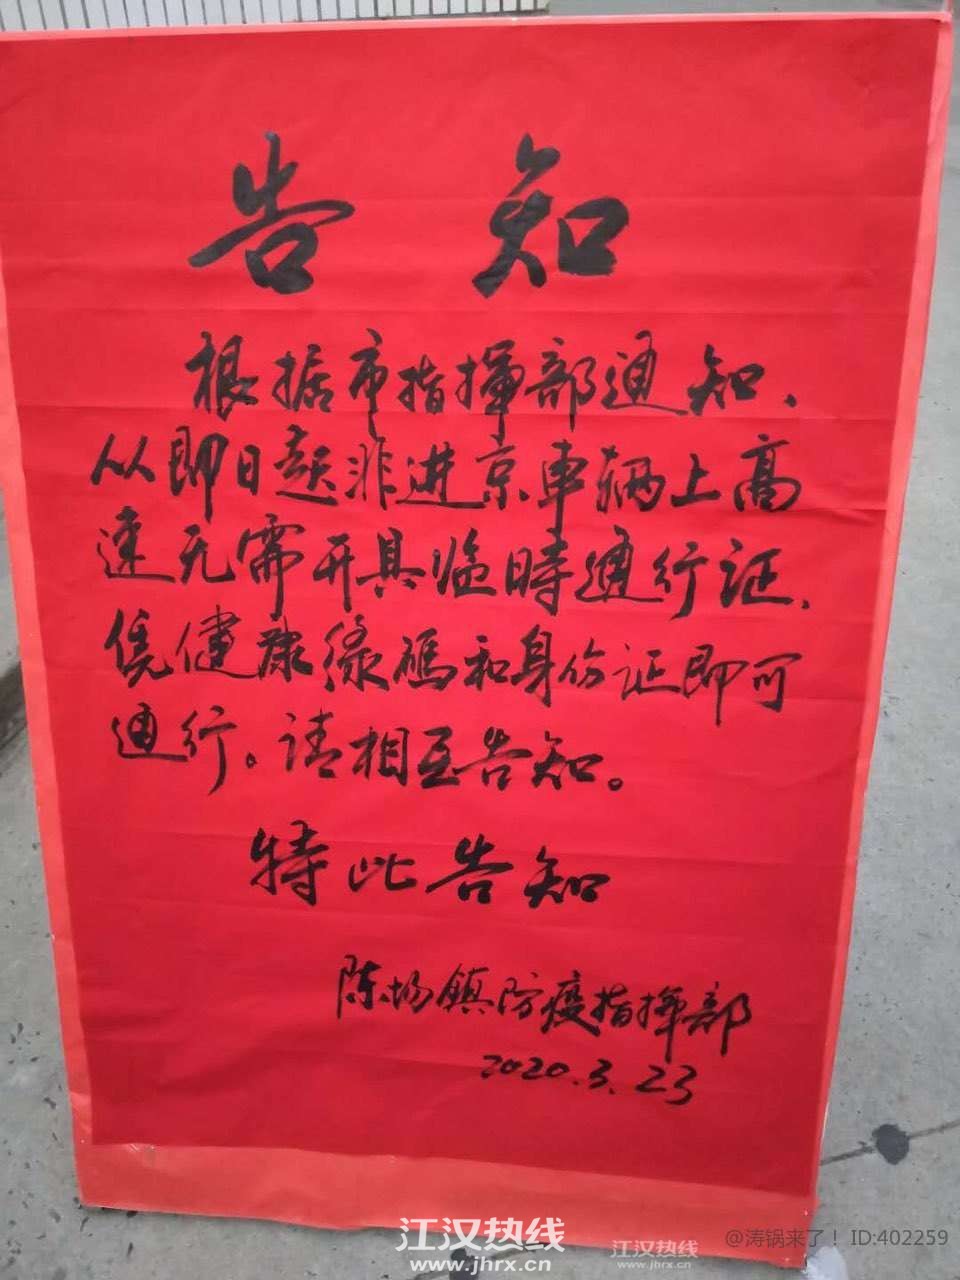 告知
根据市指揮部通知、
从即日起非进京車辆上高
速无需开具临時通行证、
凭健康緑碼和身份证即可
通行。请相互告知。
特此告知
陈场鎮防疫指揮部
2020.3.23
江汉热线
www.jhrx.cn
江汉热线
www.jhrx.cn
@涛锅来了！ID:402259